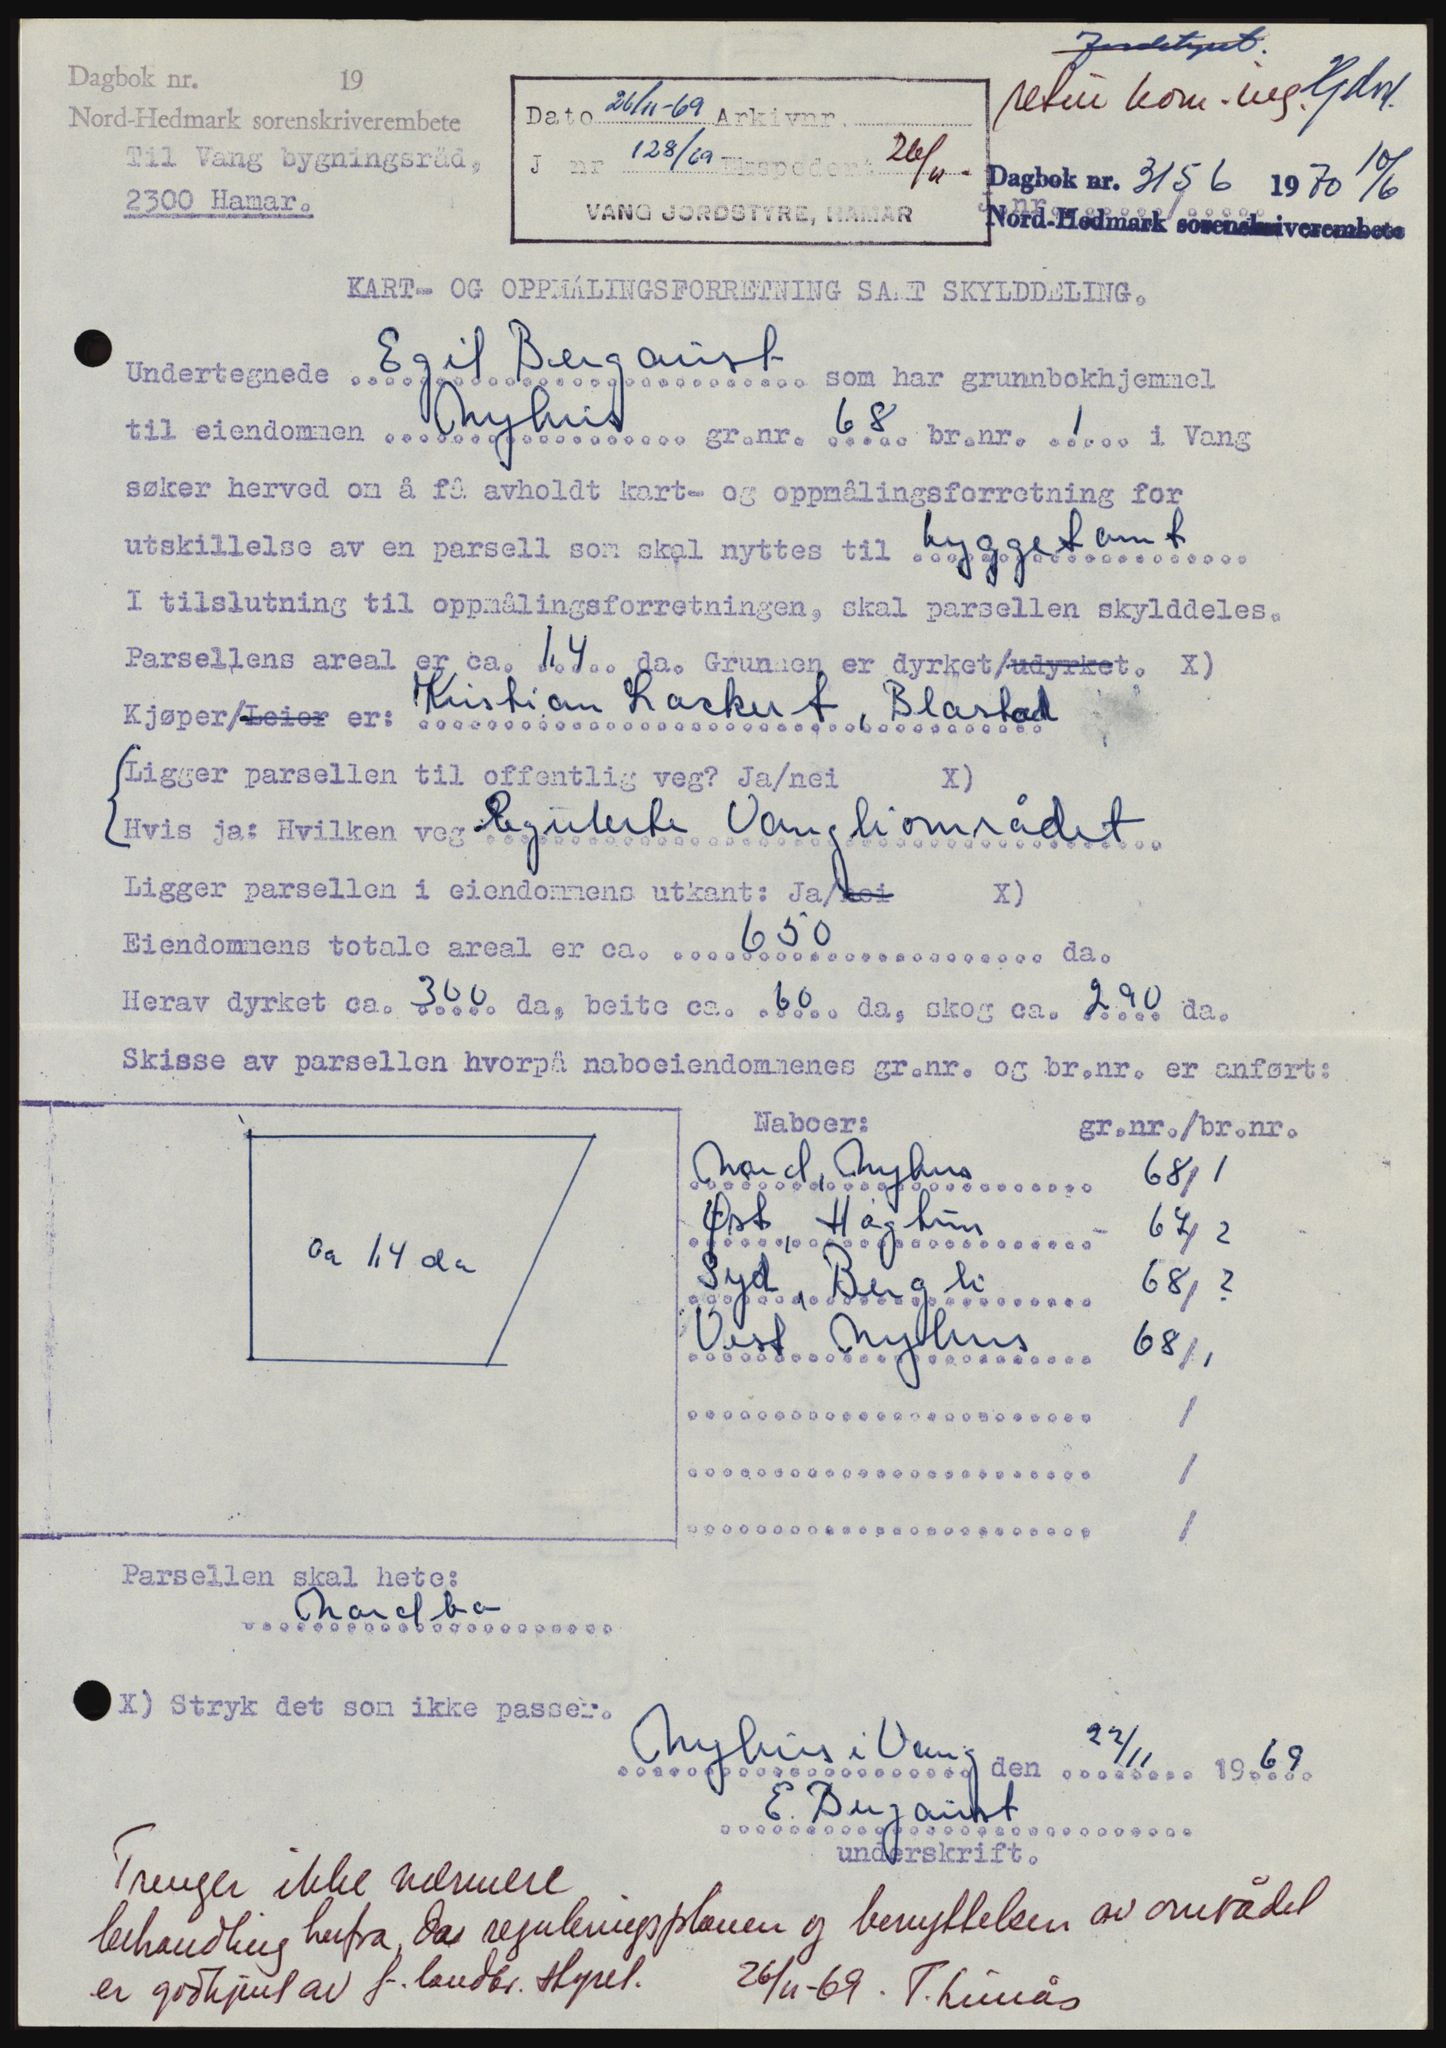 Jordstyret.
retur kom.ing.
Dagbok nr. 19
Nord-Hedmark sorenskriverembete
Til Vang bygningsråd,
2300 Hamar.
Dato 26/11-69 Arkivnr.
J nr 128/69 Ekspedert 26/11-
VANG JORDSTYRE, HAMAR
Dagbok nr. 3156 1970 10/6
J.nr. ...../.....
Nord-Hedmark sorenskriverembete
KART- OG OPPMÅLINGSFORRETNING SAMT SKYLDDELING.
Undertegnede Egil Bergquist som har grunnbokhjemmel
til eiendommen Nyhus gr.nr. 68 br.nr. 1 i Vang
søker herved om å få avholdt kart- og oppmålingsforretning for
utskillelse av en parsell som skal nyttes til byggetomt
I tilslutning til oppmålingsforretningen, skal parsellen skylddeles.
Parsellens areal er ca. 1,4 da. Grunnen er dyrket/udyrket. X)
Kjøper/Leier er: Kristian Lackert, Blæstad
Ligger parsellen til offentlig veg? Ja/nei X)
Hvis ja: Hvilken veg Regulerte Vangliområdet
Ligger parsellen i eiendommens utkant: Ja/nei X)
Eiendommens totale areal er ca. 650 da.
Herav dyrket ca. 300 da, beite ca. 60 da, skog ca. 290 da.
Skisse av parsellen hvorpå naboeiendommenes gr.nr. og br.nr. er anført:
Naboer: gr.nr./br.nr.
Nord, Nyhus 68/1
Øst, Håghus 67/ ?
ca 1,4 da
Syd, Bergli 68/ ?
Vest Nyhus 68/1
/
/
/
Parsellen skal hete:
Nordbo
X) Stryk det som ikke passer.
Nyhus i Vang den 22/11 1969
E. Bergquist
underskrift.
Trenger ikke nærmere
behandling herfra, da reguleringsplanen og benyttelsen av området
er godkjent av f. landbr. styret. 26/11-69. T. Linnås